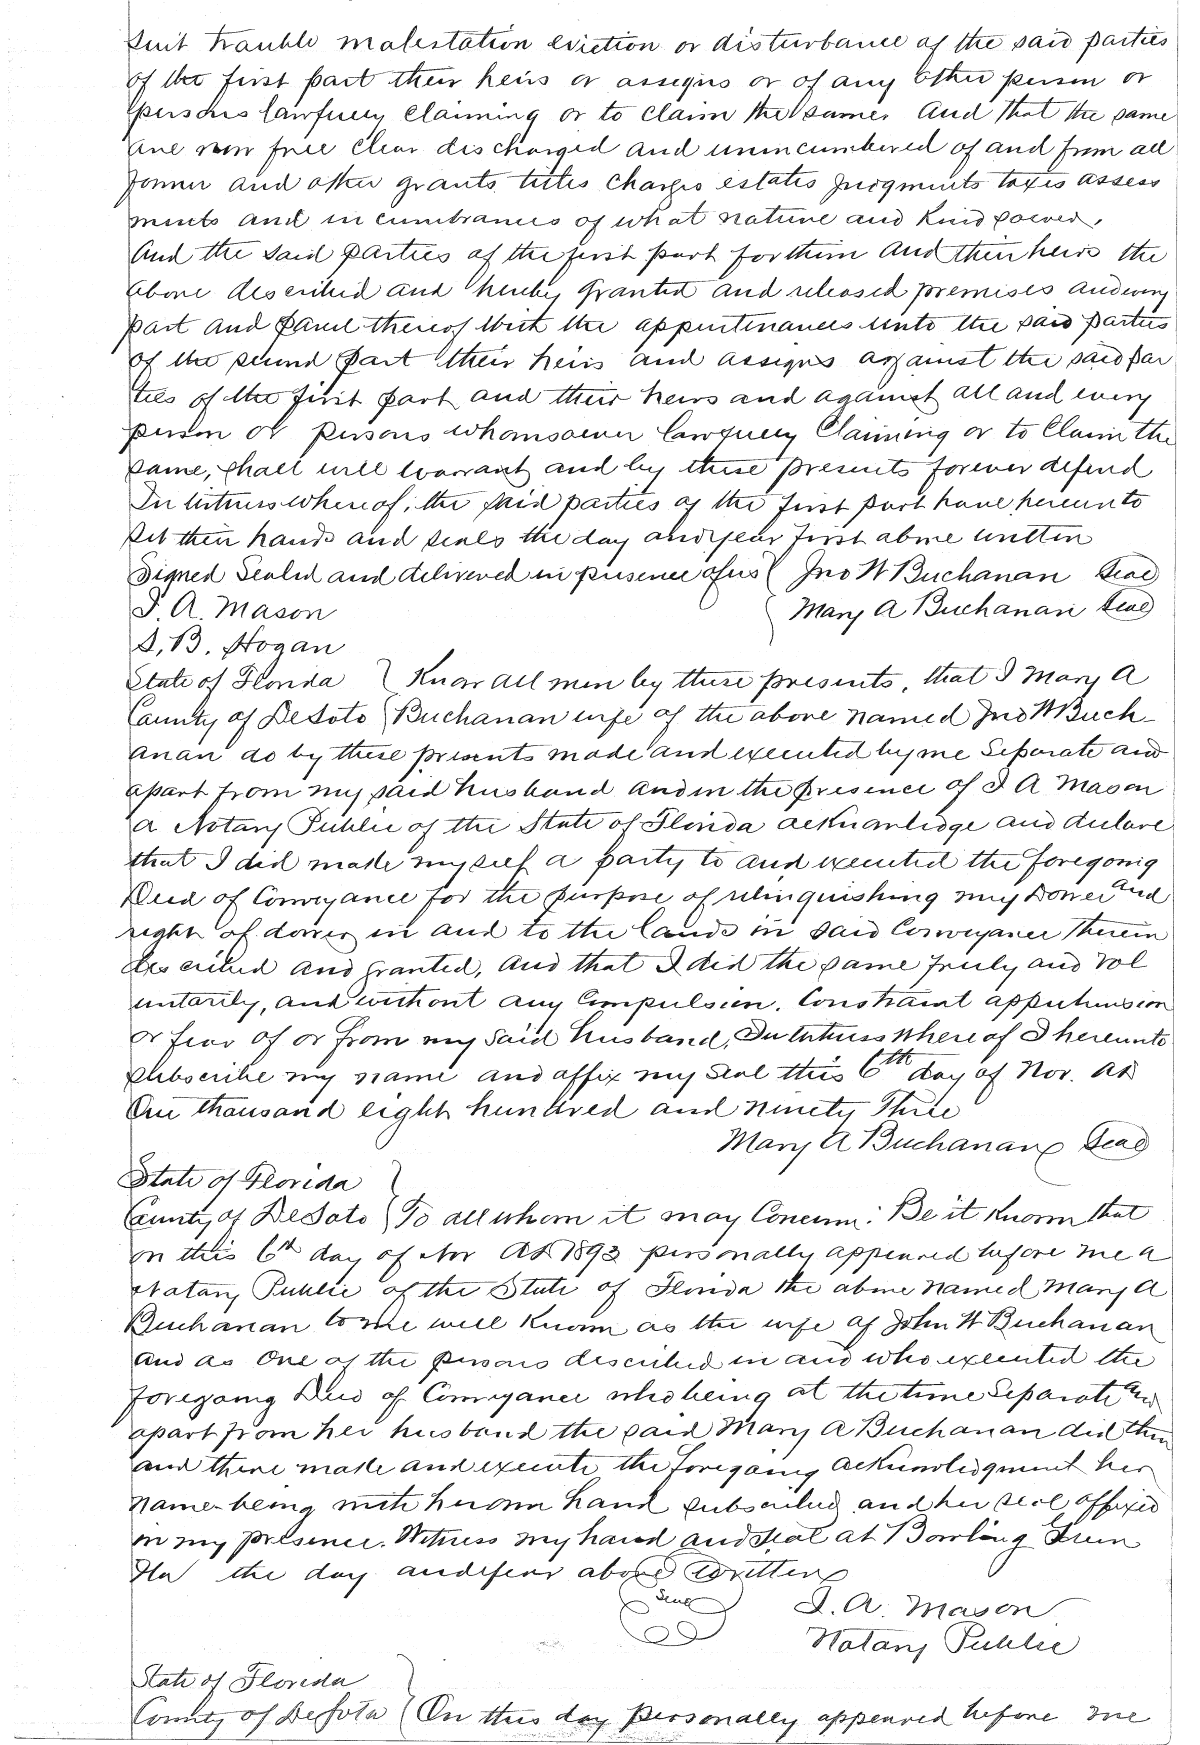 suit trouble molestation eviction or disturbance of the said parties
of the first part their heirs or assigns or of any other person or
persons lawfully claiming or to claim the same. And that the same
are now free clear discharged and unincumbered of and from all
former and other grants titles charges estates judgments taxes assess
ments and incumbrances of what nature and kind soever.
And the said parties of the first part for them and their heirs the
above described and hereby granted and released premises and every
part and parcel thereof with the appurtenances unto the said parties
of the second part their heirs and assigns against the said par
ties of the first part and their heirs and against all and every
person or persons whomsoever lawfully Claiming or to Claim the
same, shall will warrant and by these presents forever defend
In witness whereof, the said parties of the first part have hereunto
set their hands and seals the day and year first above written
Signed Sealed and delivered in presence of us ( Jno W Buchanan Seal
J. A. Mason Mary A Buchanan Seal
S. B. Hogan
State of Florida } Know all men by these presents, that I Mary A
County of DeSoto } Buchanan wife of the above named Jno W Buch-
anan do by these presents made and executed by me Separate and
apart from my said husband and in the presence of J A Mason
a Notary Public of the State of Florida acknowledge and declare
that I did make myself a party to and executed the foregoing
Deed of Conveyance for the purpose of relinquishing my Dower and
right of dower in and to the lands in said Conveyance therein
described and granted, and that I did the same freely and vol
untarily, and without any Compulsion, Constraint apprehension
or fear of or from my said husband, In witness whereof I hereunto
subscribe my name and affix my seal this 6th day of Nov. AD
One thousand eight hundred and ninety Three
Mary A Buchanan Seal
State of Florida }
County of DeSoto } To all whom it may Concern: Be it known that
on this 6th day of Nov AD 1893 personally appeared before me a
Notary Public of the State of Florida the above named Mary A
Buchanan to me well known as the wife of John W Buchanan
and as One of the persons described in and who executed the
foregoing Deed of Conveyance who being at the time Separate and
apart from her husband the said Mary A Buchanan did then
and there make and execute the foregoing acknowledgment her
name being with her own hand subscribed and her seal affixed
in my presence. Witness my hand and seal at Bowling Green
Fla the day and year above written
Seal J. A. Mason
Notary Public
State of Florida }
County of DeSoto } On this day personally appeared before me